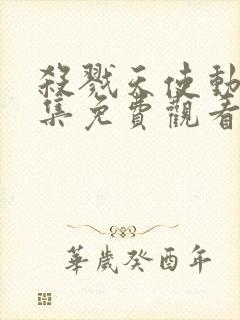 殺戮天使動
集免費觀看
華歲癸酉年